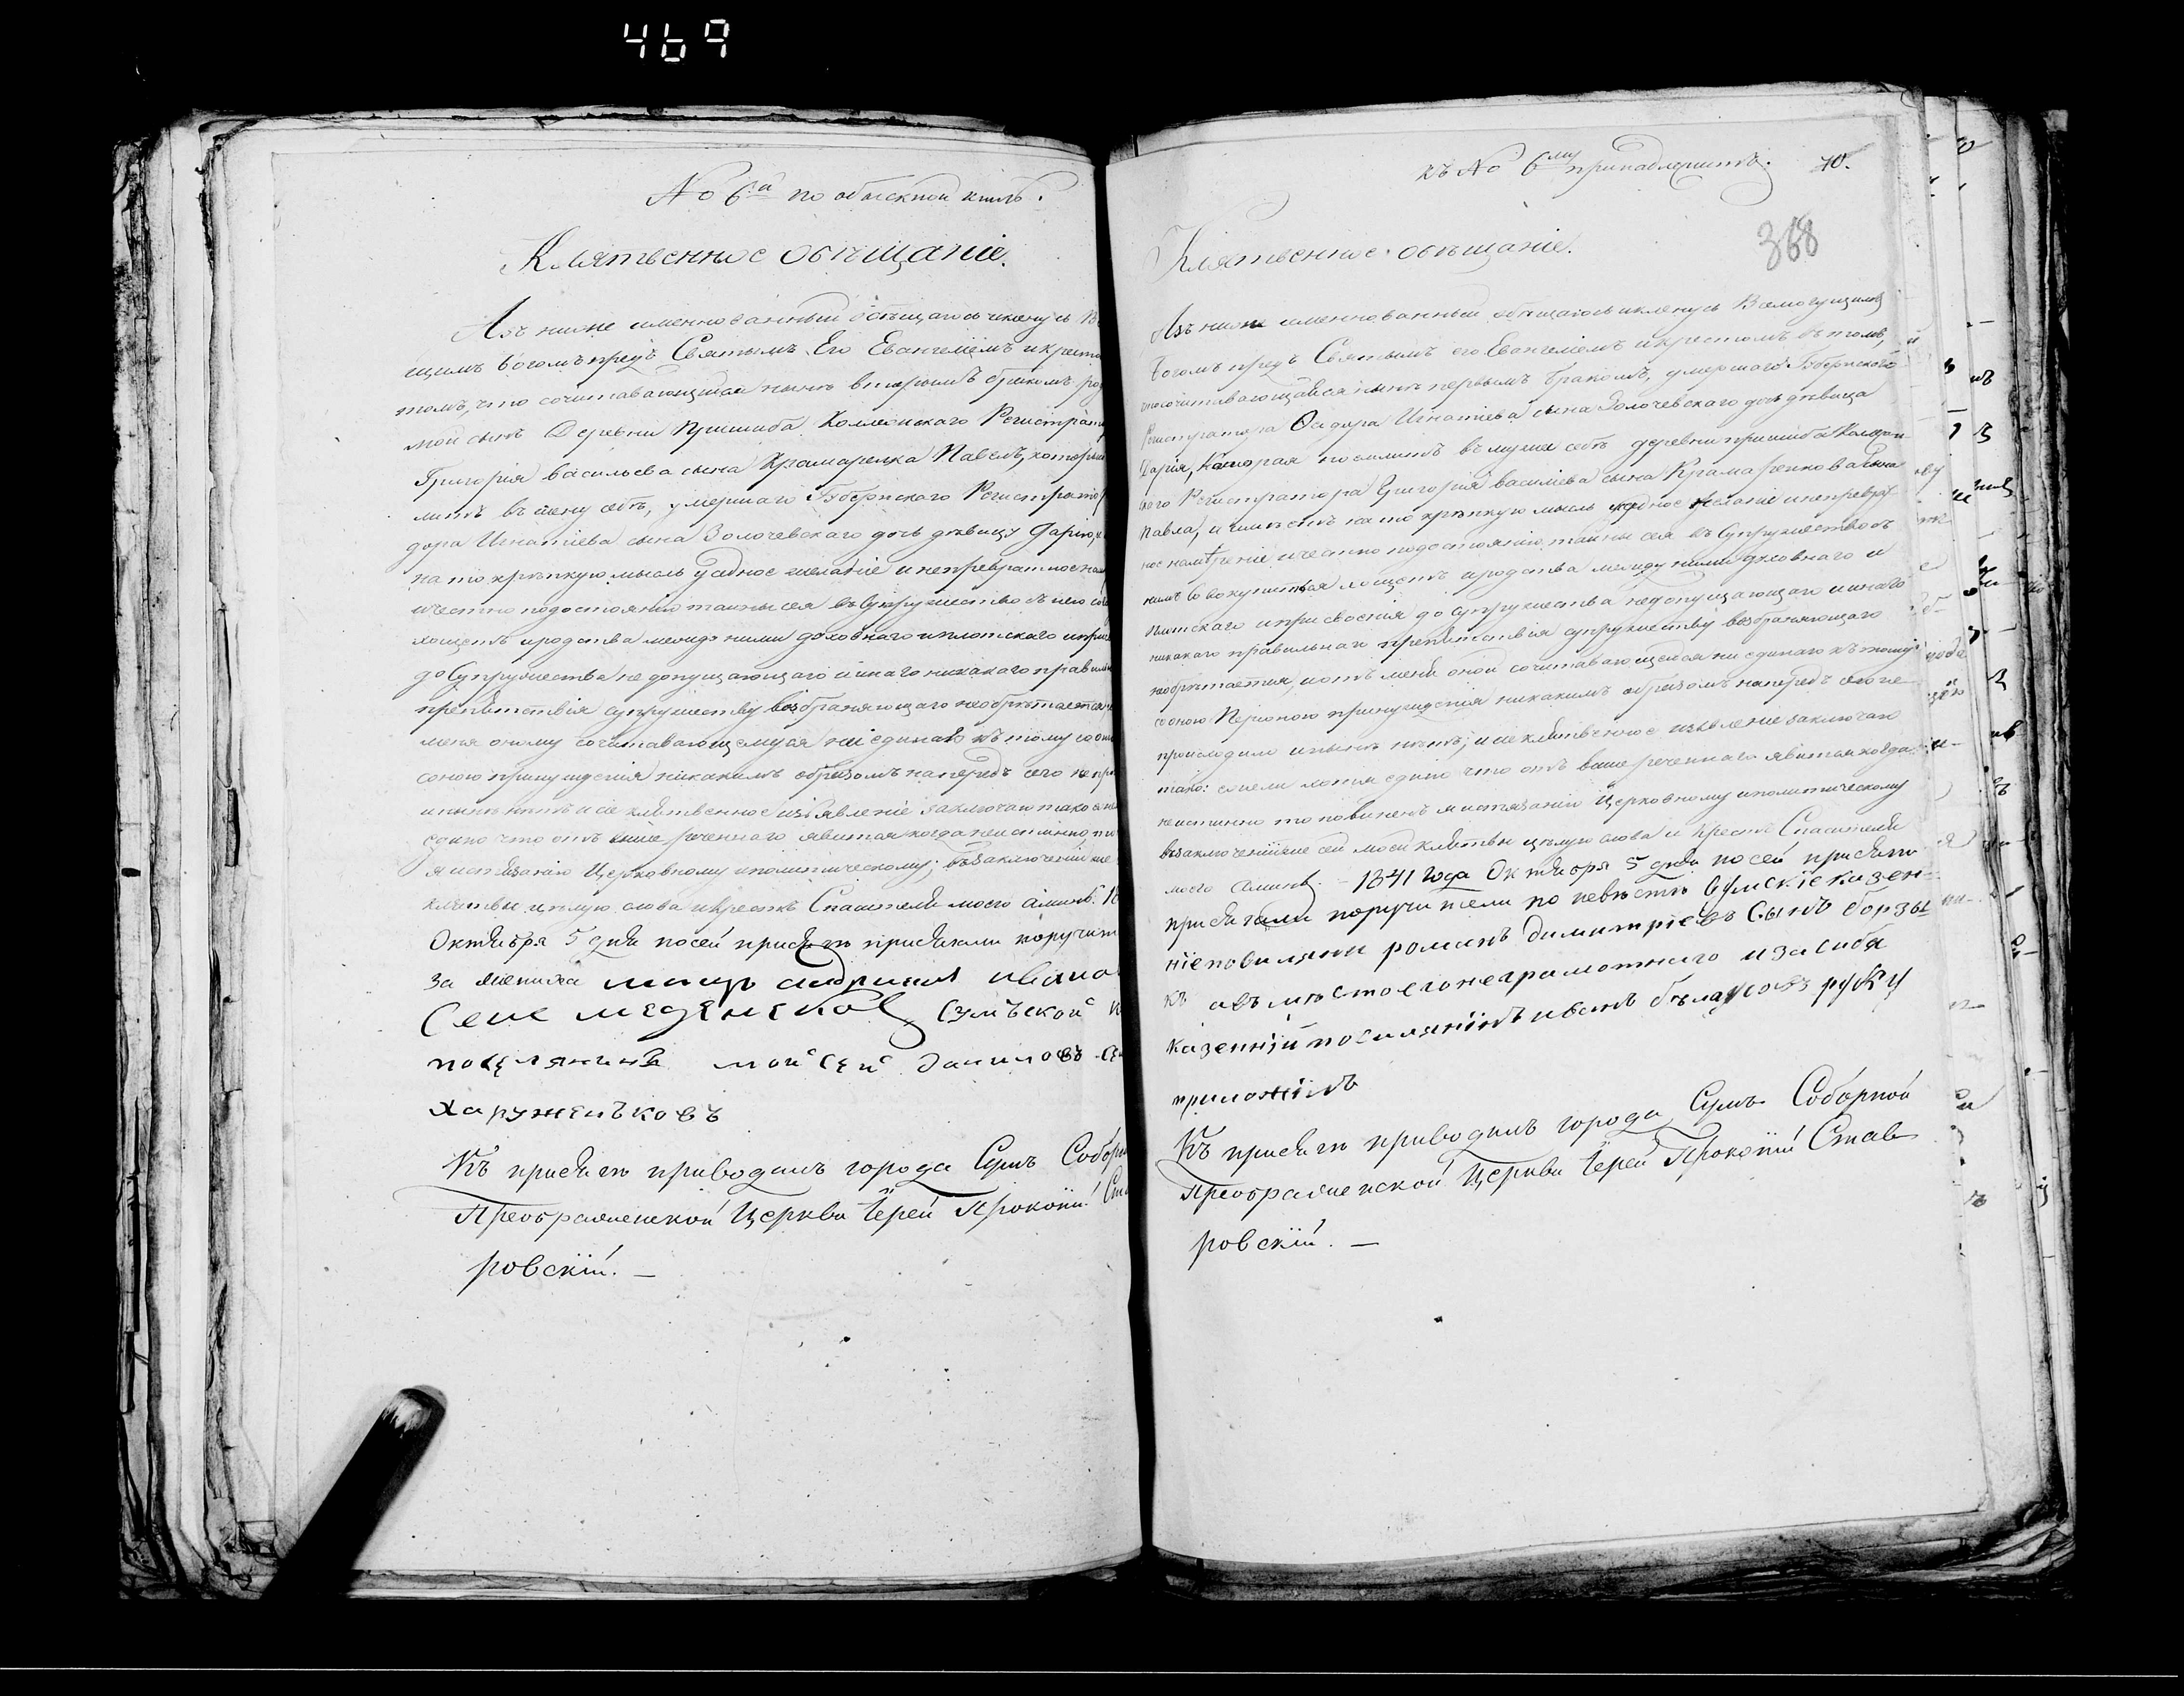 469
No 6й по обыскной книгѣ.
Клятвенное обѣщаніе.
Азъ ниже именнованный обѣщаюсь и кленусь В
щимъ Богомъ предъ Святымъ Его Евангеліемъ и крест
томъ, что сочитавающійся нынѣ вторымъ бракомъ, род
мой сынъ Деревни Пришиба Коллежскаго Регистрат
Григорія Васильева сына Крамаренка Павелъ, котор
въ жену себѣ, умершаго Губернскаго Регистрато
дора Игнатіева сына Золочевскаго дочь дѣвицу Дарію,
на то крѣпкую мысль усердное желаніе и непревратное на
и честно по достоянію тайны сея въ Супружество съ нею
хощетъ и родства между ними духовнаго и плотскаго и при
до Супружества не допущающаго и инаго никакого правил
препятствія супружеству возбраняющаго необрѣтается,
меня оному сочитавающемуся ни единаго къ тому со
соною принужденія никакимъ образомъ напередъ сего не пр
и нынѣ нѣтъ и сіе клятвенное изъявленіе заключаю тако
едино что отъ выше реченнаго явится когда неистинно, то
истязанію Церковному и политическому; въ заключеніи же
клятвы цѣлую слова и крестъ Спасителя моего аминь. 18
Октября 5 дня по сей присягѣ присягали поручит
за жениха
Сумской
поселянинъ мойсей даниловъ
харуженковъ
Къ присягѣ приводилъ города Сумъ Собор
Преображенской Церкви Іерей Прокопій Ста
ровскій. —
къ No 6му принадлежитъ. 70.
368
Клятвенное обѣщаніе.
Азъ ниже именнованный обѣщаюсь и кленусь Всемогущимъ
Богомъ предъ Святымъ его Евангеліемъ и крестомъ въ томъ,
что сочитавающаяся нынѣ первымъ бракомъ, умершаго Губернскаго
Регистратора Ѳедора Игнатіева сына Золочевскаго дочь дѣвица
Дарія, которая посягаетъ въ мужа себѣ деревни пришиба Коллеж-
скаго Регистратора Григорія Васильева сына Крамаренкова сына
Павла, и имѣетъ на то крѣпкую мысль усердное желаніе и непреврат
ное намѣреніе и честно по достоянію тайны сея въ Супружество съ
нимъ совокупитися хощетъ и родства между ними духовнаго и
плотскаго и присвоенія до Супружества недопущающаго и инаго
никакаго правильнаго препятствія супружеству возбраняющаго
необрѣтается, и отъ меня оной сочитавающейся ни единаго къ тому
со оною Персоною принужденія никакимъ образомъ напередъ сего не
происходило и нынѣ нѣтъ; и сіе клятвенное изъявленіе заключаю
тако: если хотя едино что отъ выше реченнаго явится когда
неистинно то повиненъ истязанію Церковному и политическому
въ заключеніи же сей моей клятвы цѣлую слова и крестъ Спасителя
моего Аминь. – 1841 года Октября 5 дня по сей присягѣ
присягали поручители по невѣстѣ Сумскіе казен-
ніе поселяни романъ димитріевъ Сынъ борзы
къ авъ мѣсто его неграмотнаго и за себя
казенній поселянінъ иванъ бѣлаусовъ руку
приложилъ
Къ присягѣ приводилъ города Сумъ Соборной
Преображенской Церкви Іерей Прокопій Став
ровскій. —